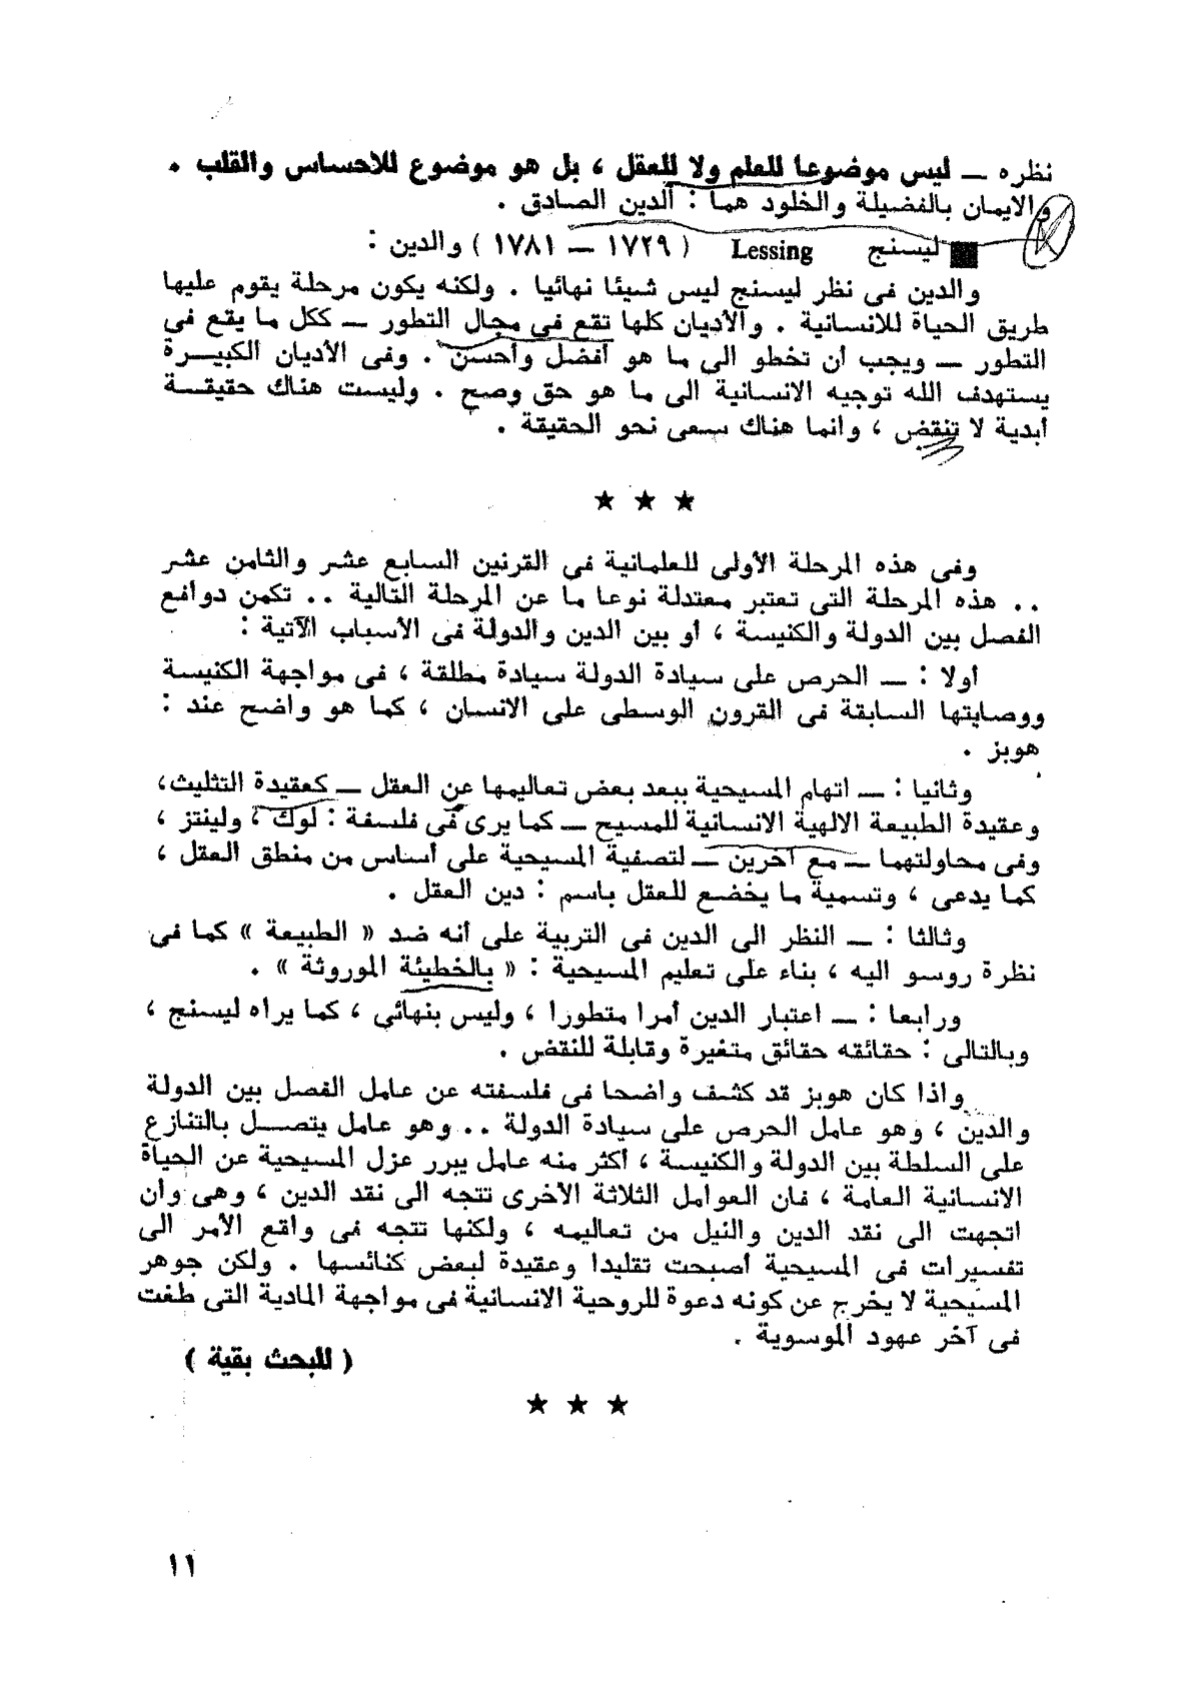 نظره — ليس موضوعا للعلم ولا للعقل ، بل هو موضوع للاحساس والقلب .
والايمان بالفضيلة والخلود هما : الدين الصادق .
ليسنج Lessing ( ١٧٢٩ — ١٧٨١ ) والدين :
والدين فى نظر ليسنج ليس شيئا نهائيا . ولكنه يكون مرحلة يقوم عليها
طريق الحياة للانسانية . والأديان كلها تقع فى مجال التطور — ككل ما يقع فى
التطور — ويجب أن تخطو الى ما هو أفضل وأحسن . وفى الأديان الكبيرة
يستهدف الله توجيه الانسانية الى ما هو حق وصح . وليست هناك حقيقة
أبدية لا تنقض ، وانما هناك سعى نحو الحقيقة .
★ ★ ★
وفى هذه المرحلة الأولى للعلمانية فى القرنين السابع عشر والثامن عشر
.. هذه المرحلة التى تعتبر معتدلة نوعا ما عن المرحلة التالية .. تكمن دوافع
الفصل بين الدولة والكنيسة ، أو بين الدين والدولة فى الأسباب الآتية :
أولا : — الحرص على سيادة الدولة سيادة مطلقة ، فى مواجهة الكنيسة
ووصايتها السابقة فى القرون الوسطى على الانسان ، كما هو واضح عند :
هوبز .
وثانيا : — اتهام المسيحية ببعد بعض تعاليمها عن العقل — كعقيدة التثليث،
وعقيدة الطبيعة الالهية الانسانية للمسيح — كما يرى فى فلسفة : لوك ، ولينتز ،
وفى محاولتهما — مع آخرين — لتصفية المسيحية على أساس من منطق العقل ،
كما يدعى ، وتسمية ما يخضع للعقل باسم : دين العقل .
وثالثا : — النظر الى الدين فى التربية على أنه ضد « الطبيعة » كما فى
نظرة روسو اليه ، بناء على تعليم المسيحية : « بالخطيئة الموروثة » .
ورابعا : — اعتبار الدين أمرا متطورا ، وليس بنهائى ، كما يراه ليسنج ،
وبالتالى : حقائقه حقائق متغيرة وقابلة للنقض .
واذا كان هوبز قد كشف واضحا فى فلسفته عن عامل الفصل بين الدولة
والدين ، وهو عامل الحرص على سيادة الدولة .. وهو عامل يتصل بالتنازع
على السلطة بين الدولة والكنيسة ، أكثر منه عامل يبرر عزل المسيحية عن الحياة
الانسانية العامة ، فان العوامل الثلاثة الأخرى تتجه الى نقد الدين ، وهى وان
اتجهت الى نقد الدين والنيل من تعاليمه ، ولكنها تتجه فى واقع الأمر الى
تفسيرات فى المسيحية أصبحت تقليدا وعقيدة لبعض كنائسها . ولكن جوهر
المسيحية لا يخرج عن كونه دعوة للروحية الانسانية فى مواجهة المادية التى طغت
فى آخر عهود الموسوية .
( للبحث بقية )
★ ★ ★
١١